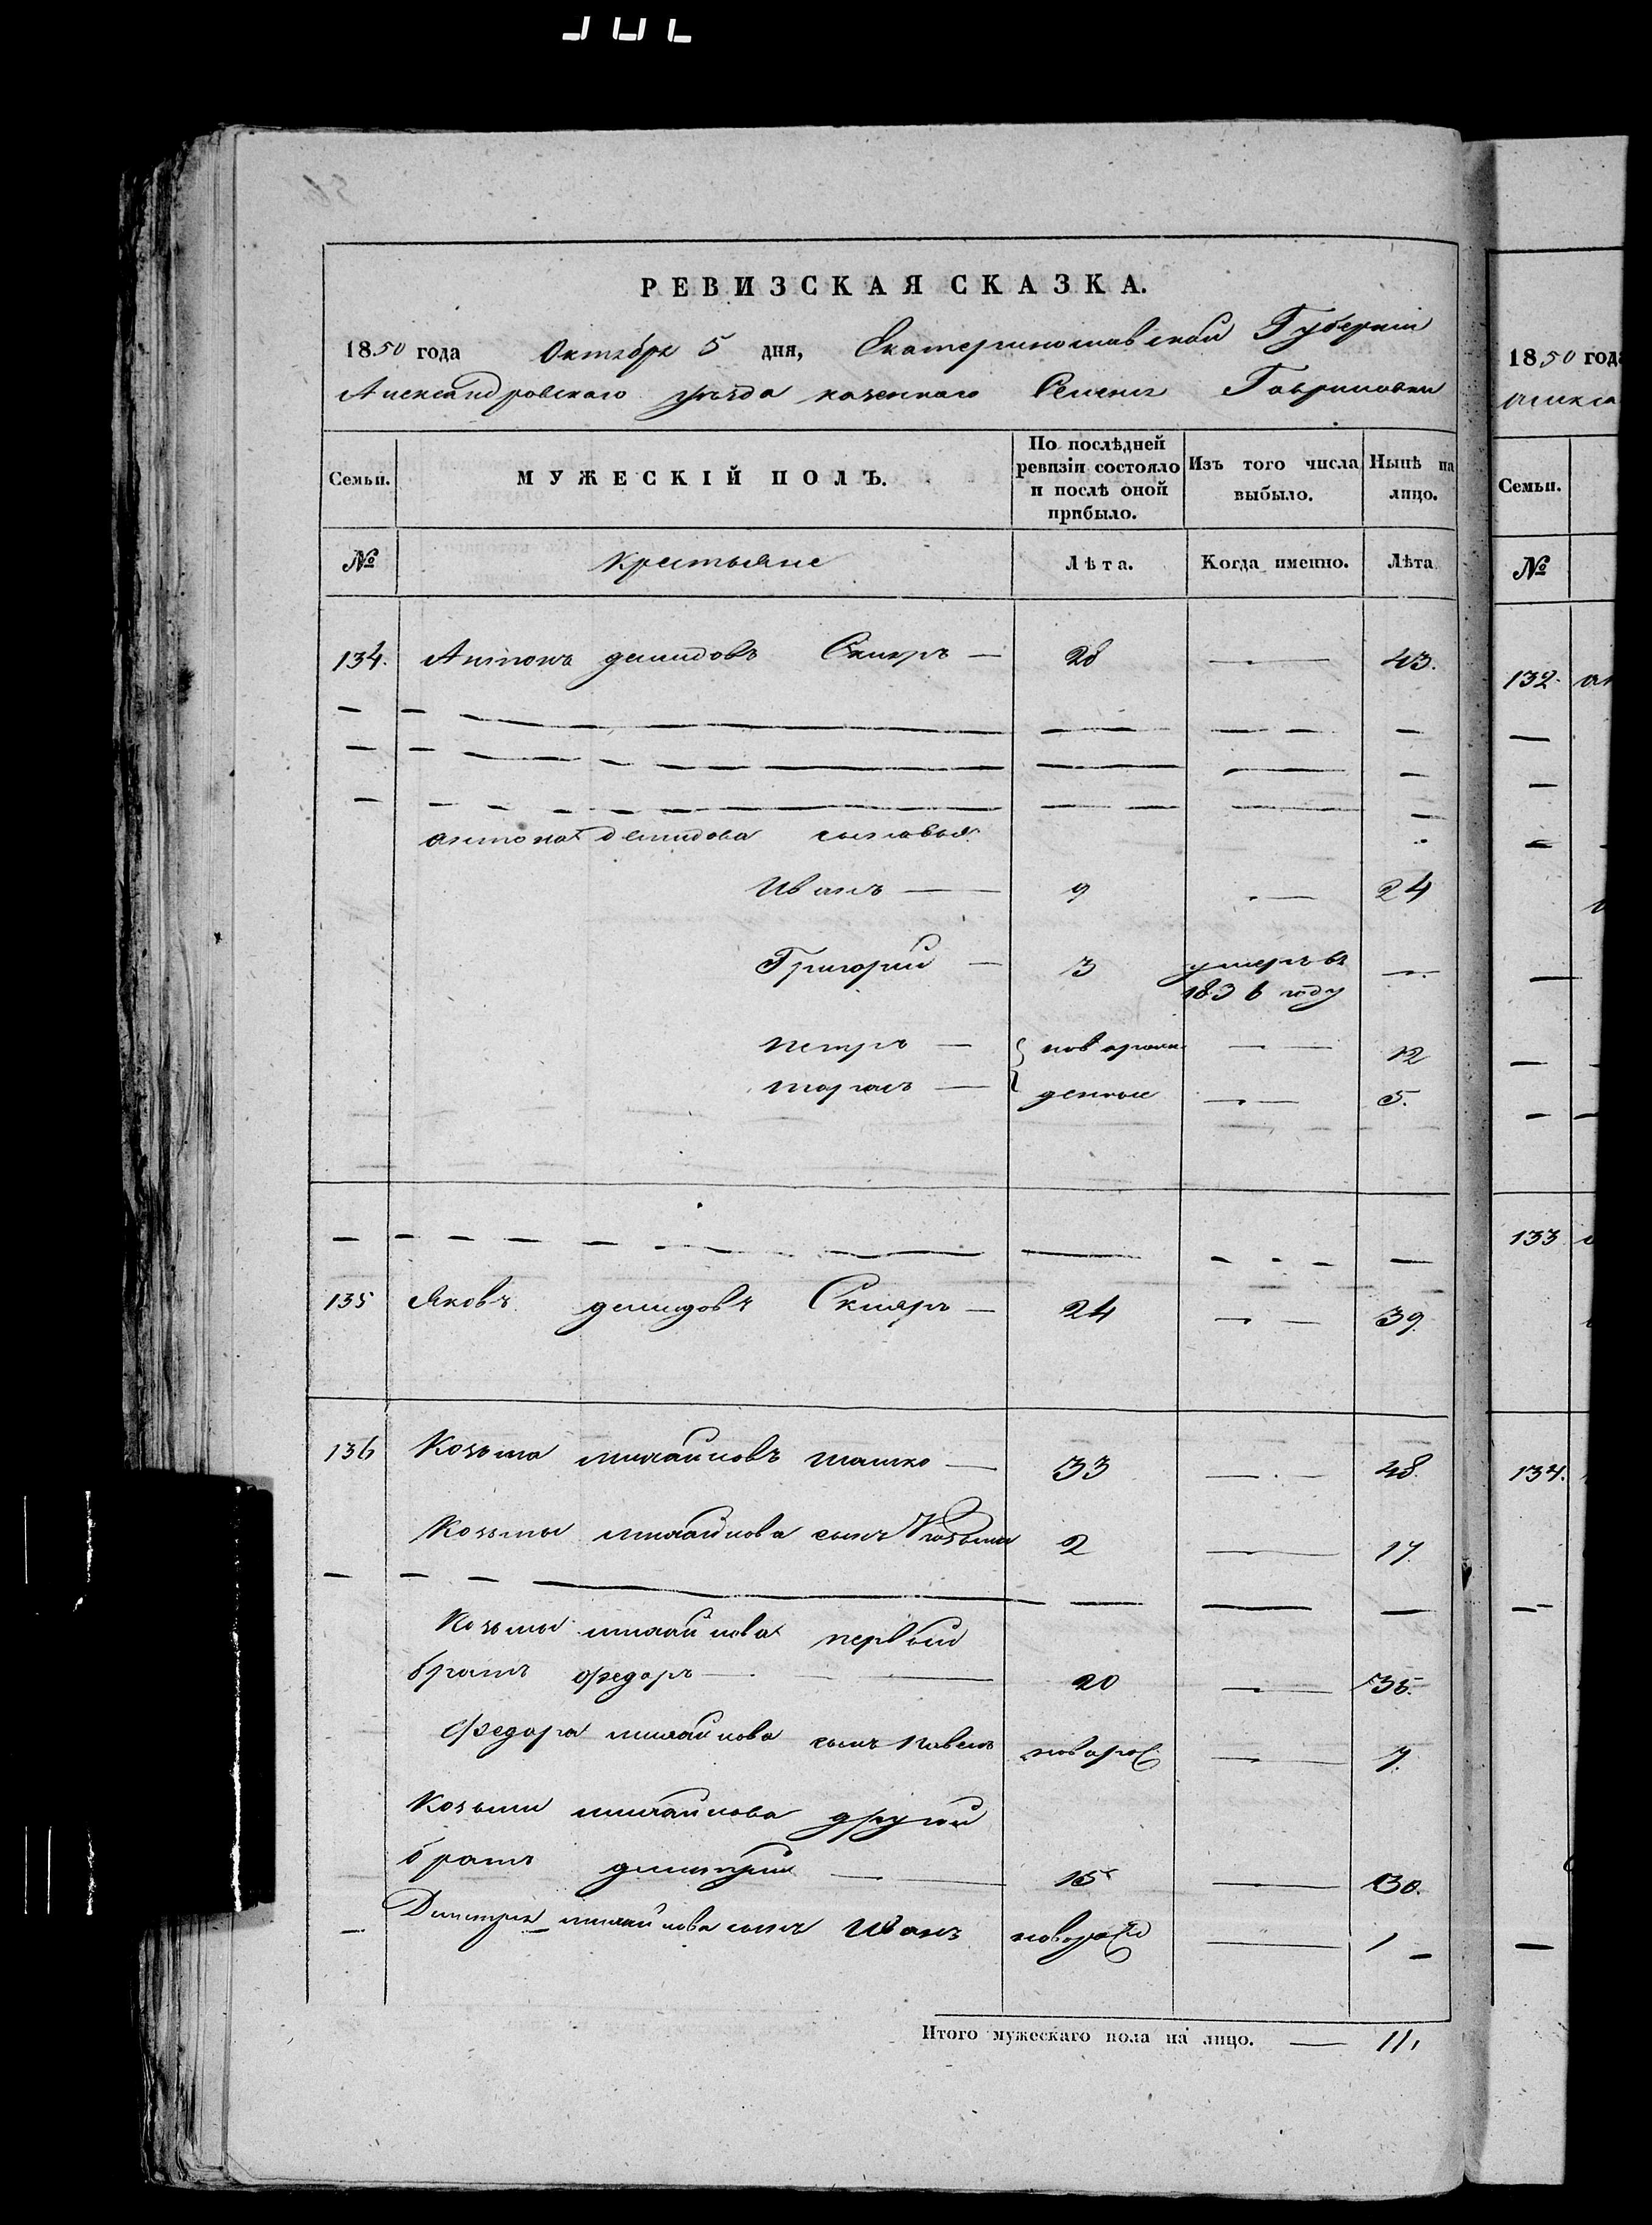 РЕВИЗСКАЯ СКАЗКА.
1850 года Октября 5 дня, Екатеринославской Губерніи
Александровского уезда казенного Селенія Гавриловки
Семьи. МУЖЕСКІЙ ПОЛЪ. По послѣдней ревизіи состояло и послѣ оной прибыло. Изъ того числа выбыло. Нынѣ на лицо.
№ Крестьяне Лѣта. Когда именно. Лѣта
134. Антонъ демидовъ Скляръ — 28 — 43.
антона демидова сыновья.
Иванъ — 9 — 24
Григорий — 3 умеръ въ 1836 году —
Петръ — новорож- — 12
Тарасъ — денные — 5.
135 Яковъ демидовъ Скляръ — 24 — 39.
136 Козьма михайловъ — 33 — 48.
Козьмы михайлова сынъ Козьма 2 — 17.
Козьмы михайлова первый
братъ федоръ — 20 — 35.
федора михайлова сынъ Павелъ новорож — 7.
Козьмы михайлова другий
братъ димитрий — 15 — 30.
Димитрия михайлова сынъ Иванъ новорож — 1
Итого мужескаго пола на лицо. — 11
1850 года
Семьи.
№
132.
133
134.